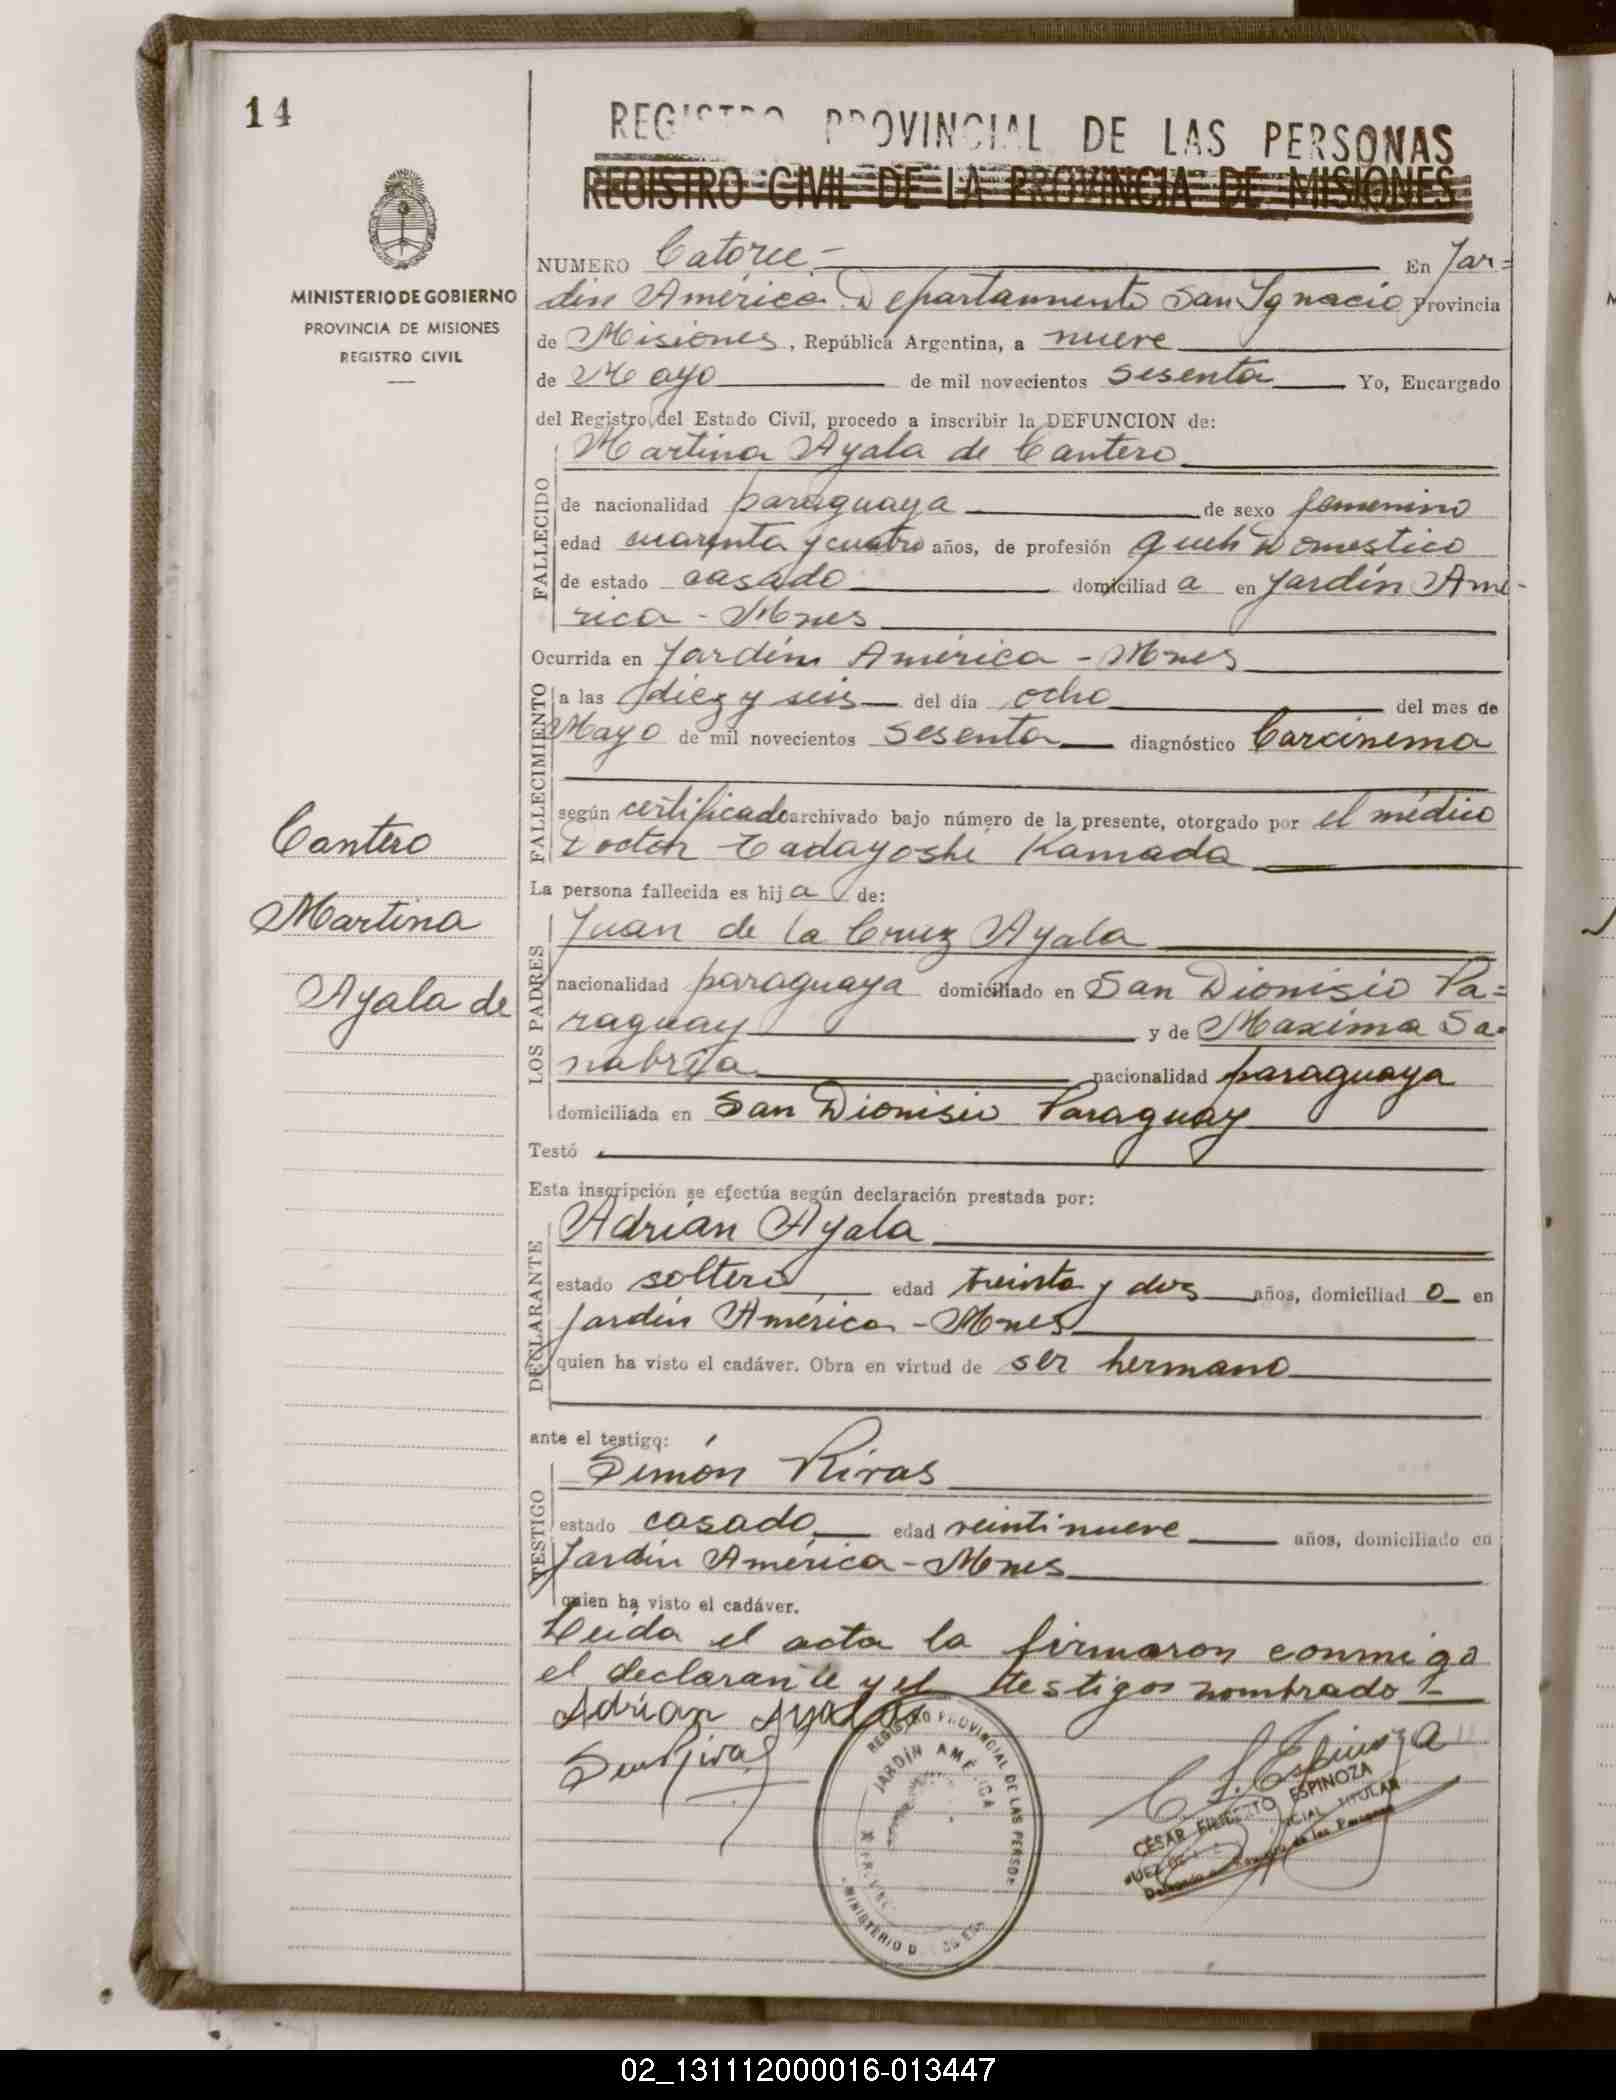 14
REGISTRO PROVINCIAL DE LAS PERSONAS
REGISTRO CIVIL DE LA PROVINCIA DE MISIONES
MINISTERIO DE GOBIERNO
PROVINCIA DE MISIONES
REGISTRO CIVIL
NUMERO Catorce - En Jar=
din América Departamento San Ignacio Provincia
de Misiones, República Argentina, a nueve
de Mayo de mil novecientos sesenta Yo, Encargado
del Registro del Estado Civil, procedo a inscribir la DEFUNCION de:
Martina Ayala de Cantero
FALLECIDO
de nacionalidad paraguaya de sexo femenino
edad cuarenta y cuatro años, de profesión queh Domestico
de estado casado domiciliad a en Jardín Amé-
rica - Mnes
Ocurrida en Jardín América - Mnes
FALLECIMIENTO
a las diez y seis del día ocho del mes de
Mayo de mil novecientos sesenta diagnóstico Carcinema
según certificado archivado bajo número de la presente, otorgado por el médico
Doctor Tadayoshi Kamada
Cantero
Martina
Ayala de
La persona fallecida es hij a de:
LOS PADRES
Juan de la Cruz Ayala
nacionalidad paraguaya domiciliado en San Dionisio Pa=
raguay y de Maxima Sa-
nabria nacionalidad paraguaya
domiciliada en San Dionisio Paraguay
Testó
Esta inscripción se efectúa según declaración prestada por:
DECLARANTE
Adrián Ayala
estado soltero edad treinta y dos años, domiciliad o en
Jardín América - Mnes
quien ha visto el cadáver. Obra en virtud de ser hermano
ante el testigo:
TESTIGO
Simón Rivas
estado casado edad veintinueve años, domiciliado en
Jardín América - Mnes
quien ha visto el cadáver.
Leida el acta la firmaron conmigo
el declarante y el testigos nombrado -
Adrian Ayala
REGISTRO PROVINCIAL DE LAS PERSO
JARDÍN AMÉRICA
MINISTERIO DE
C F. Espinoza
CÉSAR FILIBERTO ESPINOZA
TITULAR
02_131112000016-013447